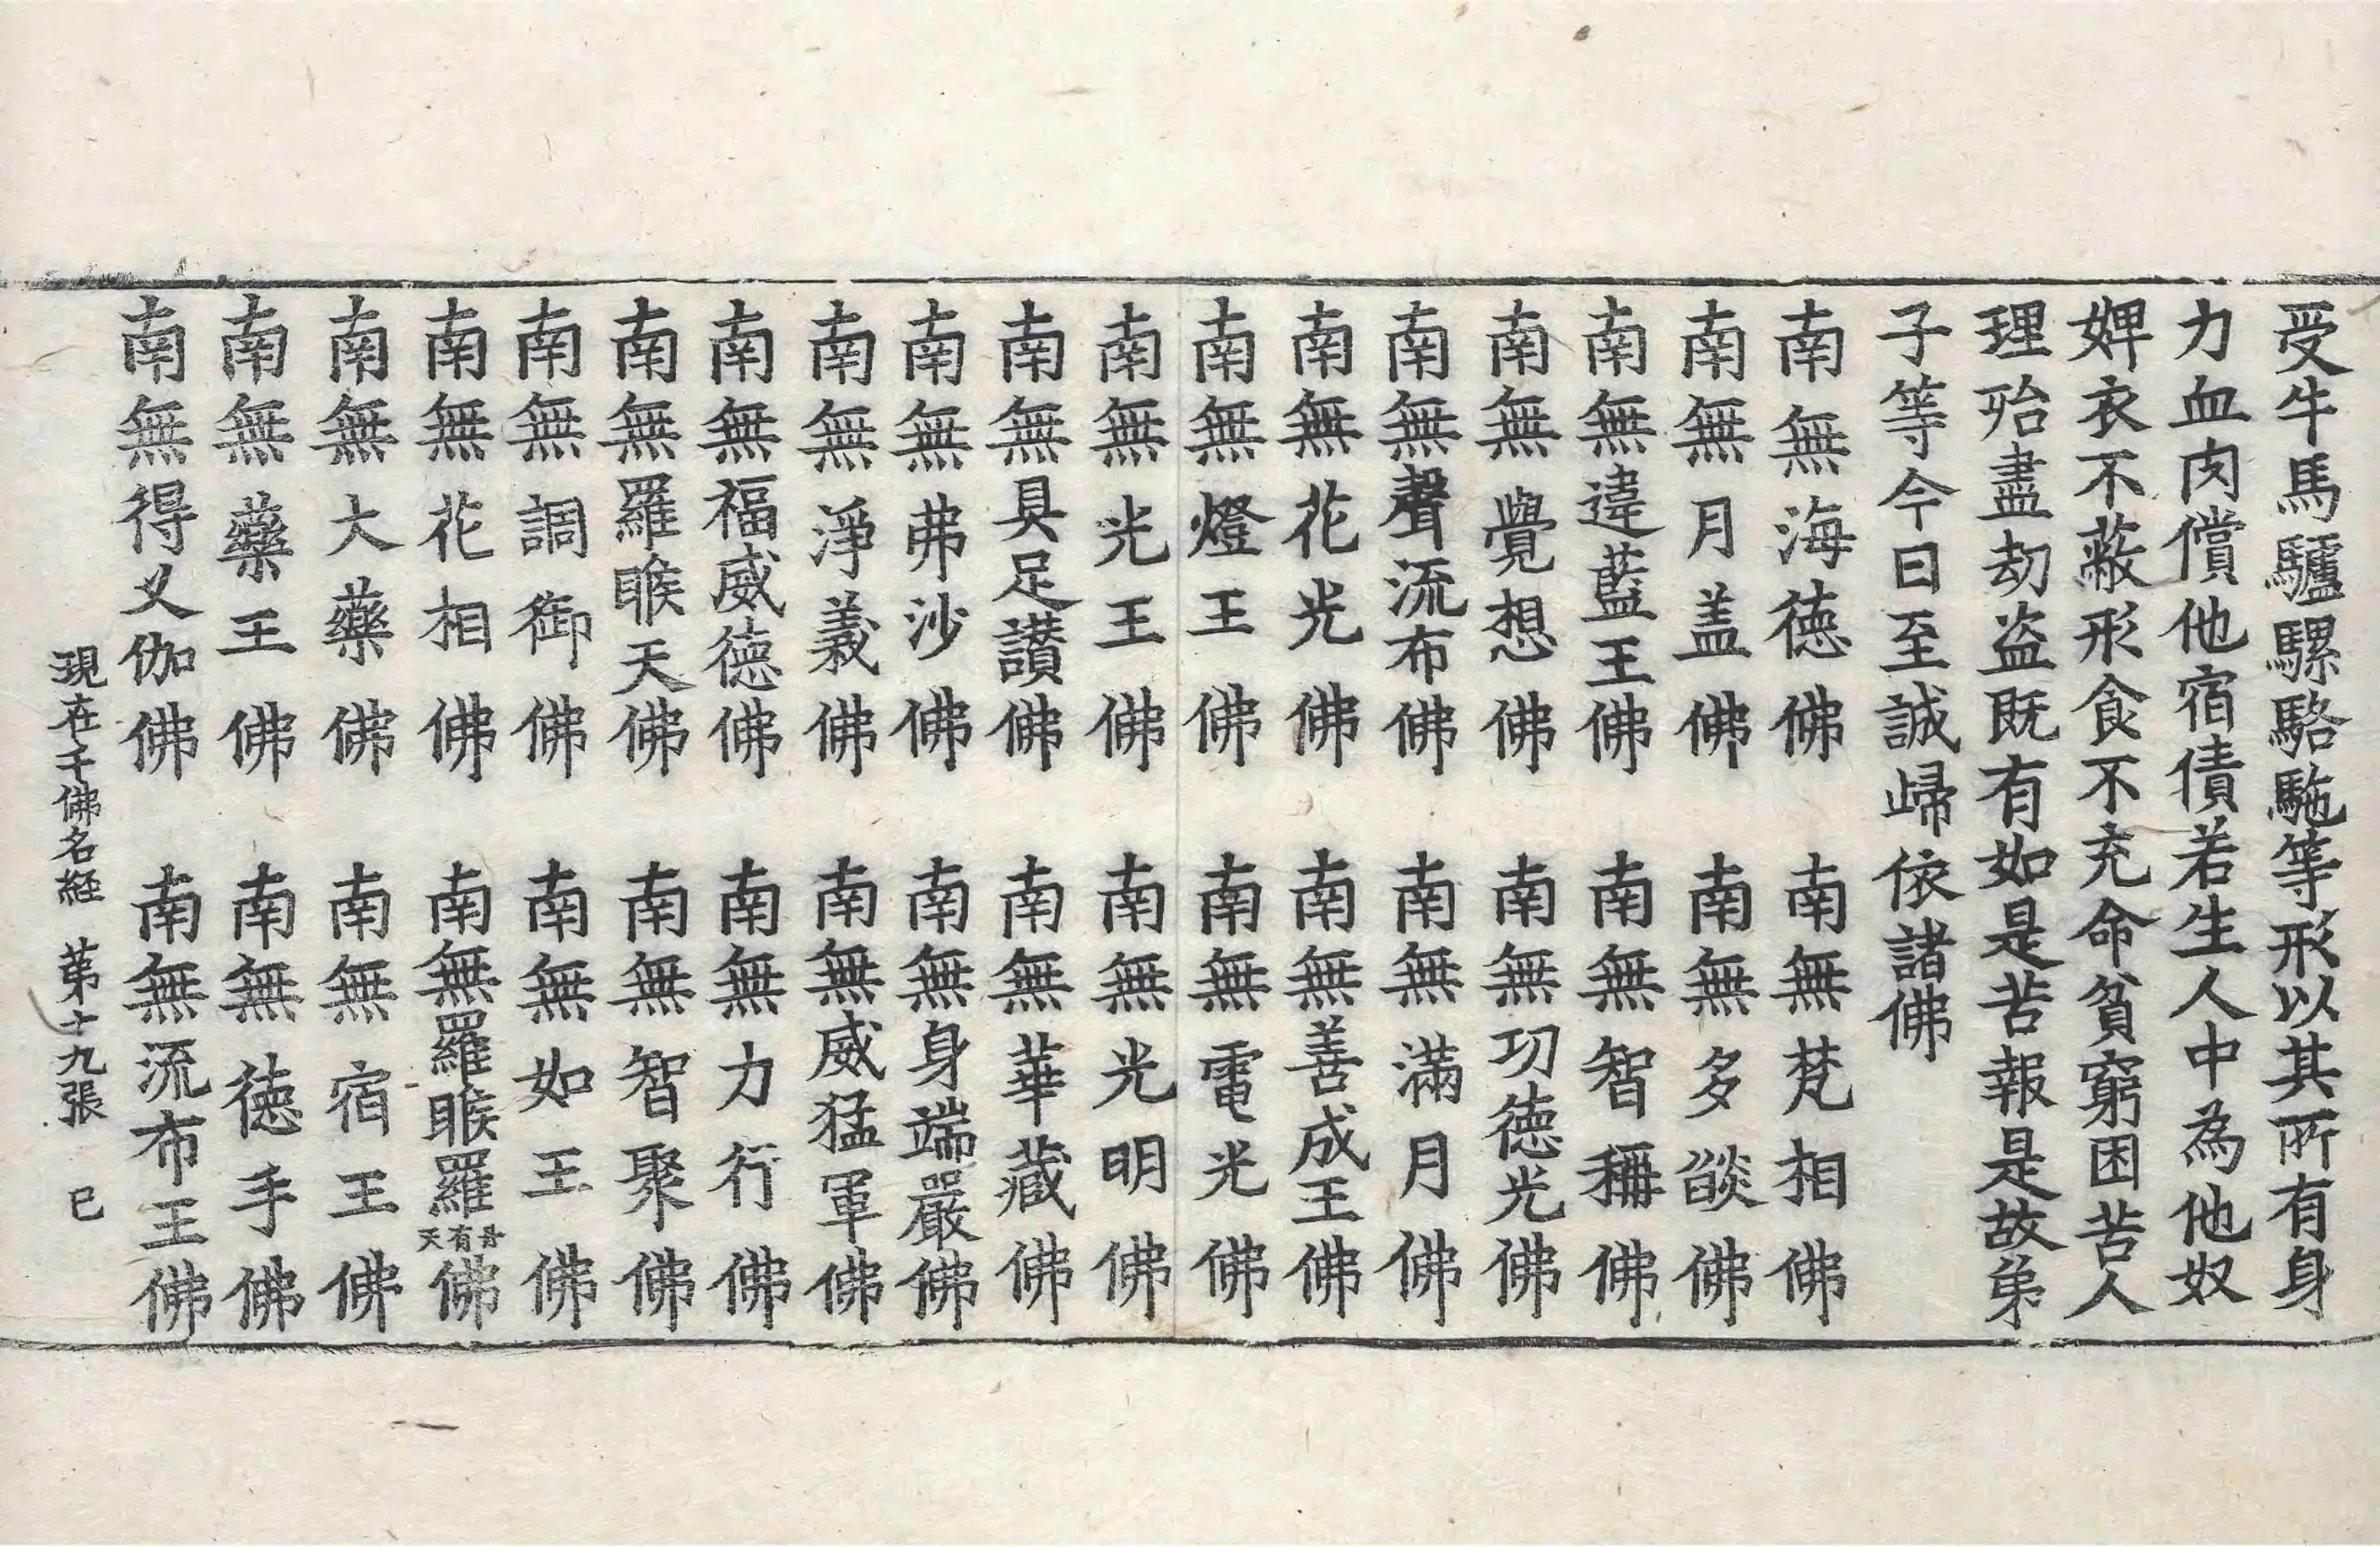 受牛馬驢騾駱駞等形以其所有身
力血肉償他宿債若生人中為他奴
婢衣不蔽形食不充命貧窮困苦人
理殆盡劫盜既有如是苦報是故弟
子等今日至誠歸依諸佛
南無海德佛　南無梵相佛
南無月盖佛　南無多燄佛
南無違藍王佛　南無智稱佛
南無覺想佛　南無功德光佛
南無聲流布佛　南無滿月佛
南無花光佛　南無善成王佛
南無燈王佛　南無電光佛
南無光王佛　南無光明佛
南無具足讃佛　南無華藏佛
南無弗沙佛　南無身端嚴佛
南無淨義佛　南無威猛軍佛
南無福威德佛　南無力行佛
南無羅睺天佛　南無智聚佛
南無調御佛　南無如王佛
南無花相佛　南無羅睺羅丹有天佛
南無大藥佛　南無宿王佛
南無藥王佛　南無德手佛
南無得叉伽佛　南無流布王佛
現在千佛名経　第十九張　巳